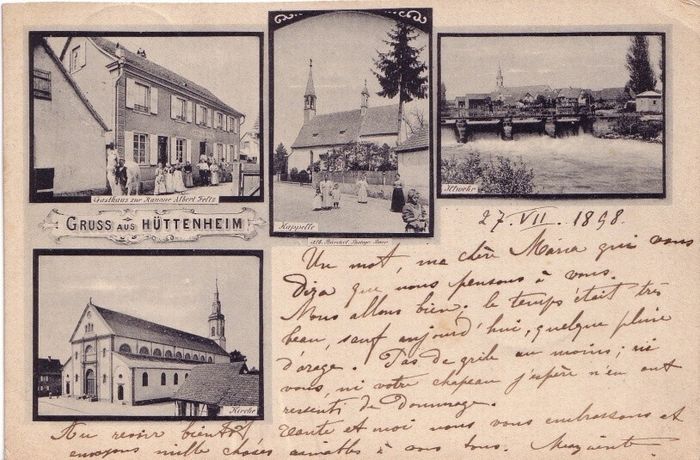 Gasthaus zur Kanone Albert Feltz
Kappelle
Alb. Bürckel, Photogr. Benor
Illwehr
GRUSS AUS HÜTTENHEIM
27. VII. 1898.
Un mot, ma chère Maria qui vous
dira que nous pensons à vous.
Nous allons bien. le temps était très
beau, sauf aujourd'hui, quelque pluie
d'orage. Pas de grêle au moins; ni
vous, ni votre chapeau j'espère n'en ont
ressenti de dommage.
Kirche
Au revoir bientôt / tante et moi nous vous embrassons et
envoyons mille choses aimables à vous tous.